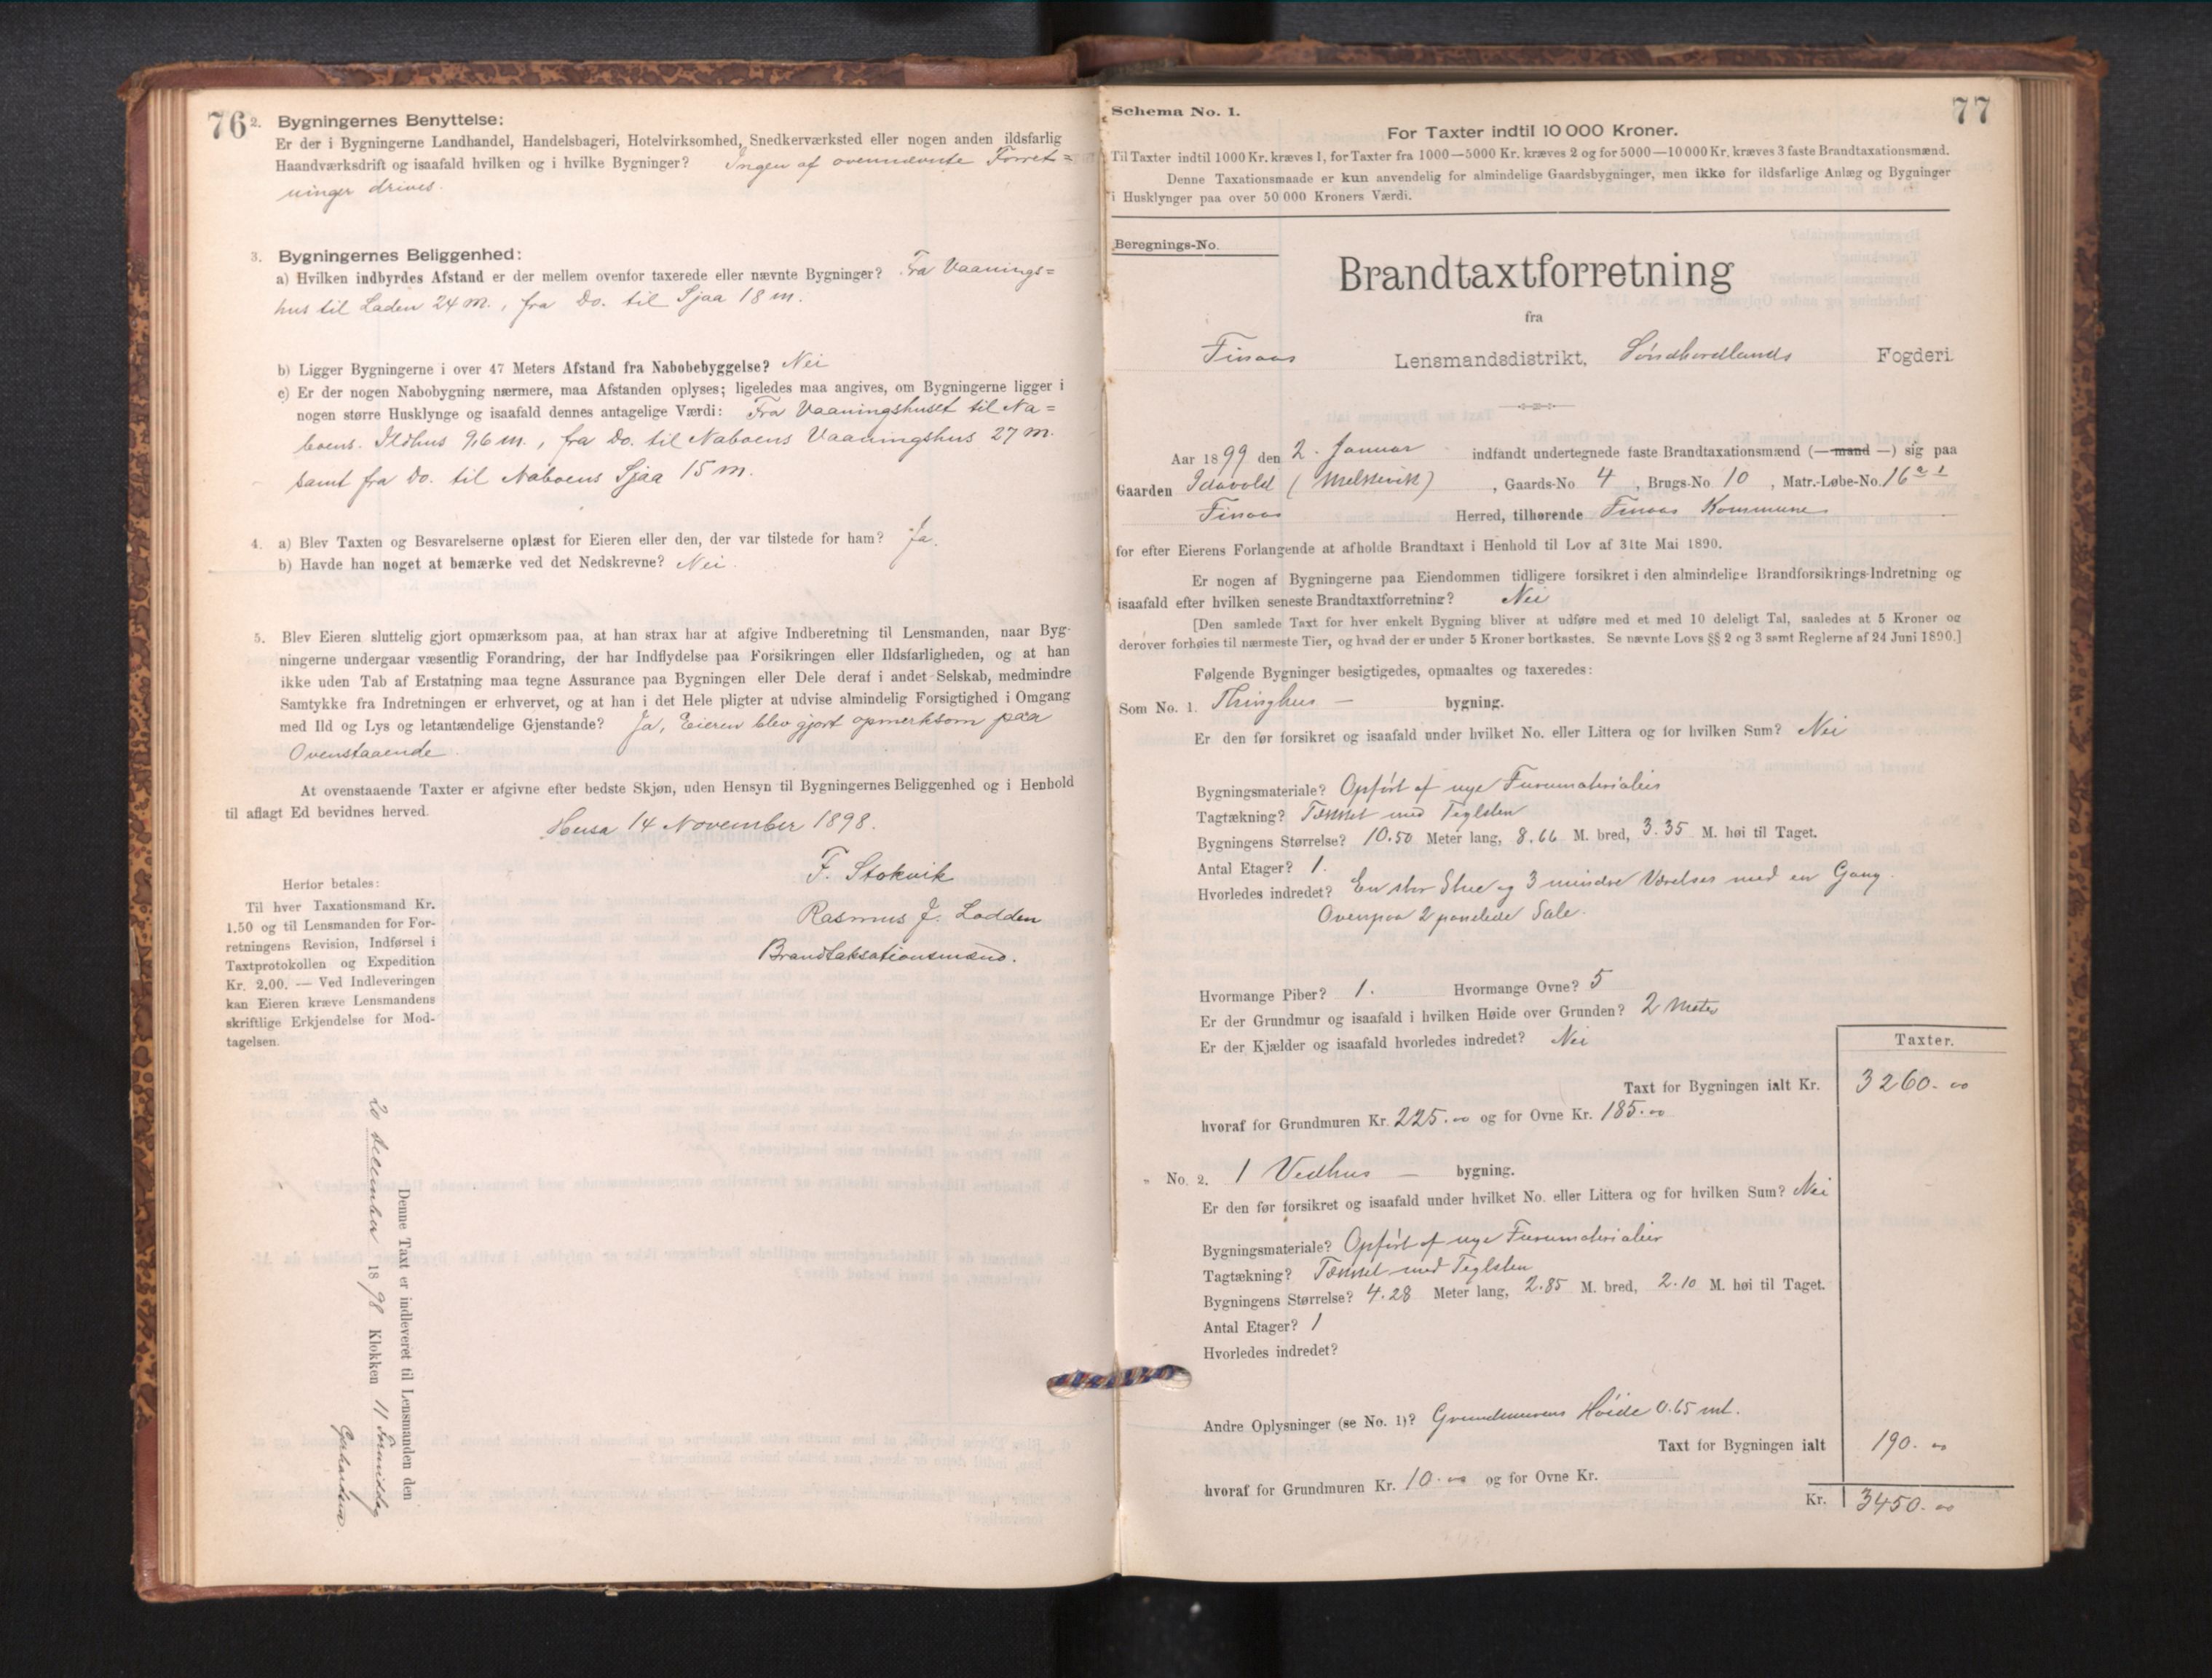 76
2. Bygningernes Benyttelse:
Er der i Bygningerne Landhandel, Handelsbageri, Hotelvirksomhed, Snedkerværksted eller nogen anden ildsfarlig
Haandværksdrift og isaafald hvilken og i hvilke Bygninger? Ingen af ovennævnte Forret=
ninger drives.
3. Bygningernes Beliggenhed:
a) Hvilken indbyrdes Afstand er der mellem ovenfor taxerede eller nævnte Bygninger? Fra Vaanings=
hus til Laden 24 m., fra Do. til Sjaa 18 m.
b) Ligger Bygningerne i over 47 Meters Afstand fra Nabobebyggelse? Nei
c) Er der nogen Nabobygning nærmere, maa Afstanden oplyses; ligeledes maa angives, om Bygningerne ligger i
nogen større Husklynge og isaafald dennes antagelige Værdi: Fra Vaaningshuset til Na=
boens. Ildhus 9,6 m., fra Do. til Naboens Vaaningshus 27 m.
samt fra Do. til Naboens Sjaa 15 m.
4. a) Blev Taxten og Besvarelserne oplæst for Eieren eller den, der var tilstede for ham? Ja.
b) Havde han noget at bemærke ved det Nedskrevne? Nei.
5. Blev Eieren sluttelig gjort opmærksom paa, at han strax har at afgive Indberetning til Lensmanden, naar Byg-
ningerne undergaar væsentlig Forandring, der har Indflydelse paa Forsikringen eller Ildsfarligheden, og at han
ikke uden Tab af Erstatning maa tegne Assurance paa Bygningen eller Dele deraf i andet Selskab, medmindre
Samtykke fra Indretningen er erhvervet, og at han i det Hele pligter at udvise almindelig Forsigtighed i Omgang
med Ild og Lys og letantændelige Gjenstande? Ja, Eieren blev gjort opmerksom paa
Ovenstaaende.
At ovenstaaende Taxter er afgivne efter bedste Skjøn, uden Hensyn til Bygningernes Beliggenhed og i Henhold
til aflagt Ed bevidnes herved.
Husa 14 November 1898.
F. Stokvik
Rasmus J. Lodden
Brandtaksationsmænd.
Herfor betales:
Til hver Taxationsmand Kr.
1.50 og til Lensmanden for For-
retningens Revision, Indførsel i
Taxtprotokollen og Expedition
Kr. 2.00. — Ved Indleveringen
kan Eieren kræve Lensmandens
skriftlige Erkjendelse for Mod-
tagelsen.
Denne Taxt er indleveret til Lensmanden den
20 december 1898 Klokken 11 Formiddag
Gerhardsen.
77
Schema No. 1.
For Taxter indtil 10 000 Kroner.
Til Taxter indtil 1000 Kr. kræves 1, for Taxter fra 1000—5000 Kr. kræves 2 og for 5000—10 000 Kr. kræves 3 faste Brandtaxationsmænd.
Denne Taxationsmaade er kun anvendelig for almindelige Gaardsbygninger, men ikke for ildsfarlige Anlæg og Bygninger
i Husklynger paa over 50 000 Kroners Værdi.
Beregnings-No.
Brandtaxtforretning
fra
Finaas Lensmandsdistrikt, Søndhordlands Fogderi.
Aar 1899 den 2. Januar indfandt undertegnede faste Brandtaxationsmænd (—mand —) sig paa
Gaarden Idavold (Melkevik), Gaards-No 4, Brugs-No 10, Matr.-Løbe-No. 16 a 1
Finaas Herred, tilhørende Finaas Kommune
for efter Eierens Forlangende at afholde Brandtaxt i Henhold til Lov af 31te Mai 1890.
Er nogen af Bygningerne paa Eiendommen tidligere forsikret i den almindelige Brandforsikrings-Indretning og
isaafald efter hvilken seneste Brandtaxtforretning? Nei
[Den samlede Taxt for hver enkelt Bygning bliver at udføre med et med 10 deleligt Tal, saaledes at 5 Kroner og
derover forhøies til nærmeste Tier, og hvad der er under 5 Kroner bortkastes. Se nævnte Lovs §§ 2 og 3 samt Reglerne af 24 Juni 1890.]
Følgende Bygninger besigtigedes, opmaaltes og taxeredes:
Som No. 1. Thinghus — bygning.
Er den før forsikret og isaafald under hvilket No. eller Littera og for hvilken Sum? Nei
Bygningsmateriale? Opført af nye Furumaterialier
Tagtækning? Tækket med Teglsten
Bygningens Størrelse? 10.50 Meter lang, 8.66 M. bred, 3.35 M. høi til Taget.
Antal Etager? 1.
Hvorledes indredet? En stor Stue og 3 mindre Værelser med en Gang.
Ovenpaa 2 panelede Sale.
Hvormange Piber? 1. Hvormange Ovne? 5
Er der Grundmur og isaafald i hvilken Høide over Grunden? 2 Meter
Er der Kjælder og isaafald hvorledes indredet? Nei
Taxter.
Taxt for Bygningen ialt Kr. 3260.00
hvoraf for Grundmuren Kr. 225.00 og for Ovne Kr. 185.00
" No. 2. 1 Vedhus — bygning.
Er den før forsikret og isaafald under hvilket No. eller Littera og for hvilken Sum? Nei
Bygningsmateriale? Opført af nye Furumaterialier
Tagtækning? Tækket med Teglsten
Bygningens Størrelse? 4.28 Meter lang, 2.85 M. bred, 2.10 M. høi til Taget.
Antal Etager? 1
Hvorledes indredet?
Andre Oplysninger (se No. 1)? Grundmurens Høide 0.65 mt.
Taxt for Bygningen ialt 190.00
hvoraf for Grundmuren Kr. 10.00 og for Ovne Kr.
Kr. 3450.00